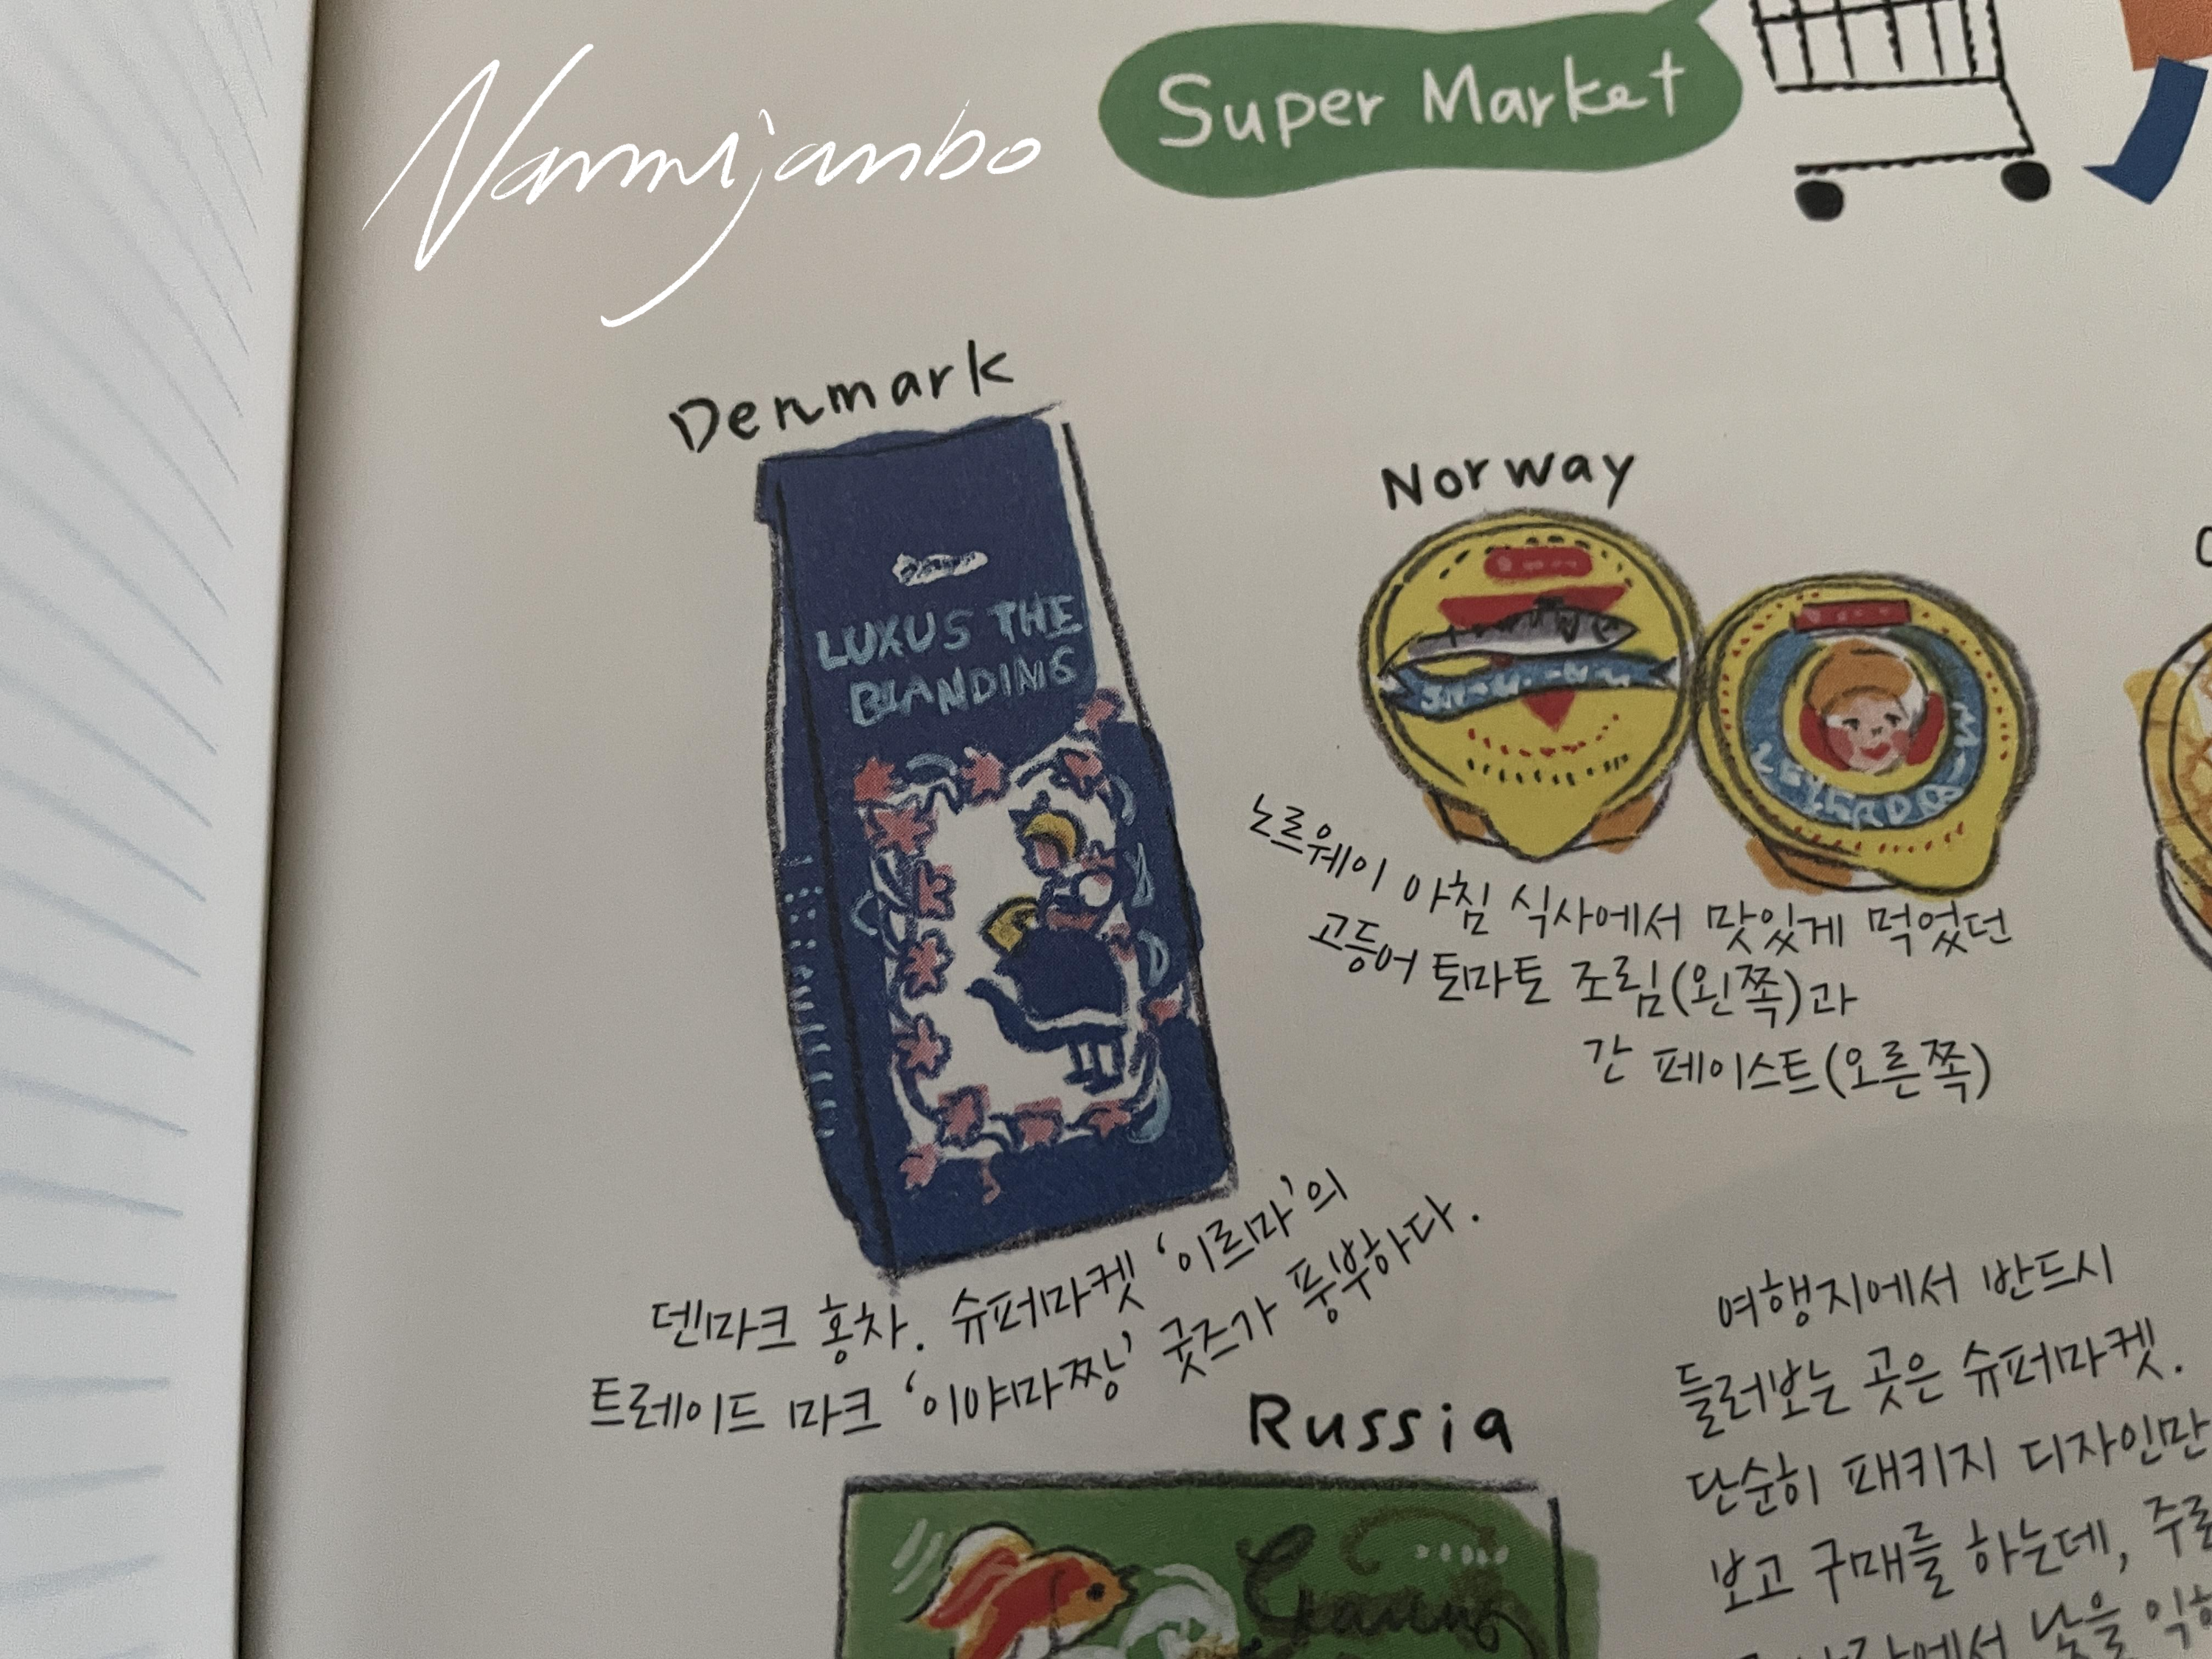 Nammijanbo
Super Market
Denmark
LUXUS THE
BLANDING
덴마크 홍차. 슈퍼마켓 ‘이르마’의
트레이드 마크 ‘이야마짱’ 굿즈가 풍부하다.
Norway
노르웨이 아침 식사에서 맛있게 먹었던
고등어 토마토 조림(왼쪽)과
간 페이스트(오른쪽)
Russia
여행지에서 반드시
들러보는 곳은 슈퍼마켓.
단순히 패키지 디자인만
보고 구매를 하는데,